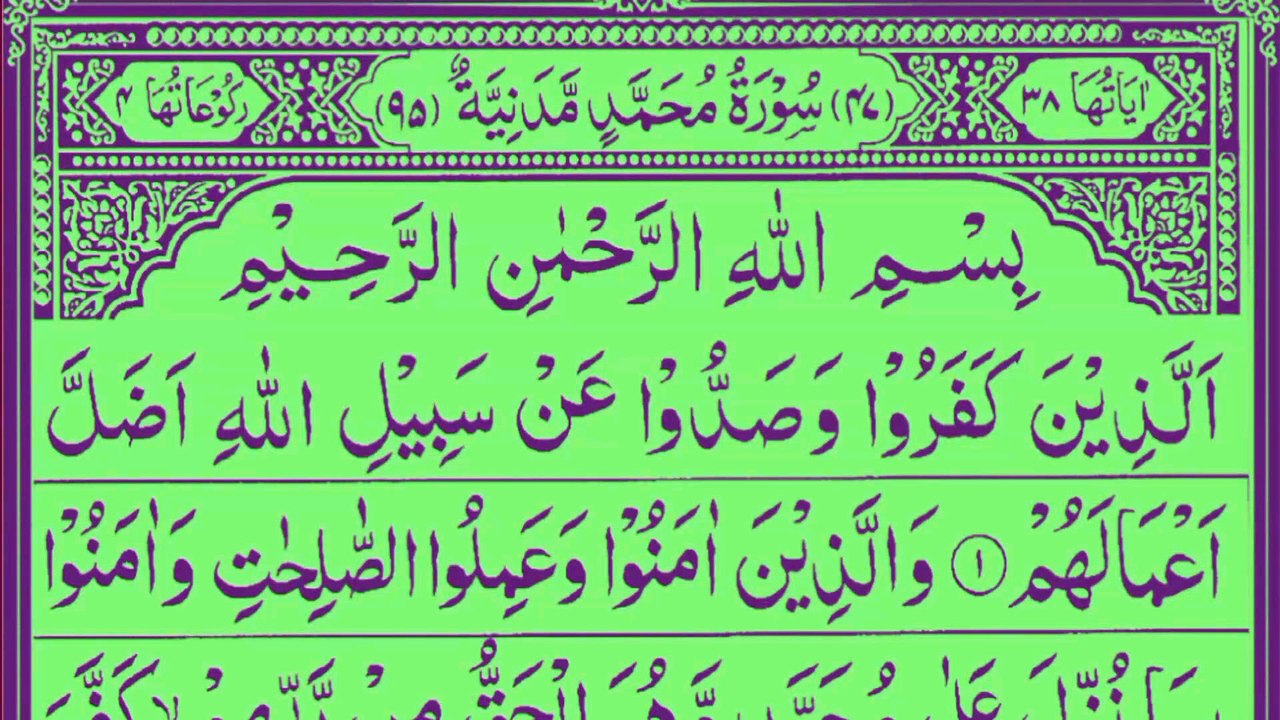 اٰيَاتُهَا ٣٨ (٤٧) سُوْرَةُ مُحَمَّدٍ مَّدَنِيَّةٌ (٩٥) رُكُوْعَاتُهَا ٤
بِسْمِ اللّٰهِ الرَّحْمٰنِ الرَّحِيْمِ
اَلَّذِيْنَ كَفَرُوْا وَصَدُّوْا عَنْ سَبِيْلِ اللّٰهِ اَضَلَّ
اَعْمَالَهُمْ ۝١ وَالَّذِيْنَ اٰمَنُوْا وَعَمِلُوا الصّٰلِحٰتِ وَاٰمَنُوْا
بِمَا نُزِّلَ عَلٰى مُحَمَّدٍ وَّهُوَ الْحَقُّ مِنْ رَّبِّهِمْ ۙ كَفَّرَ